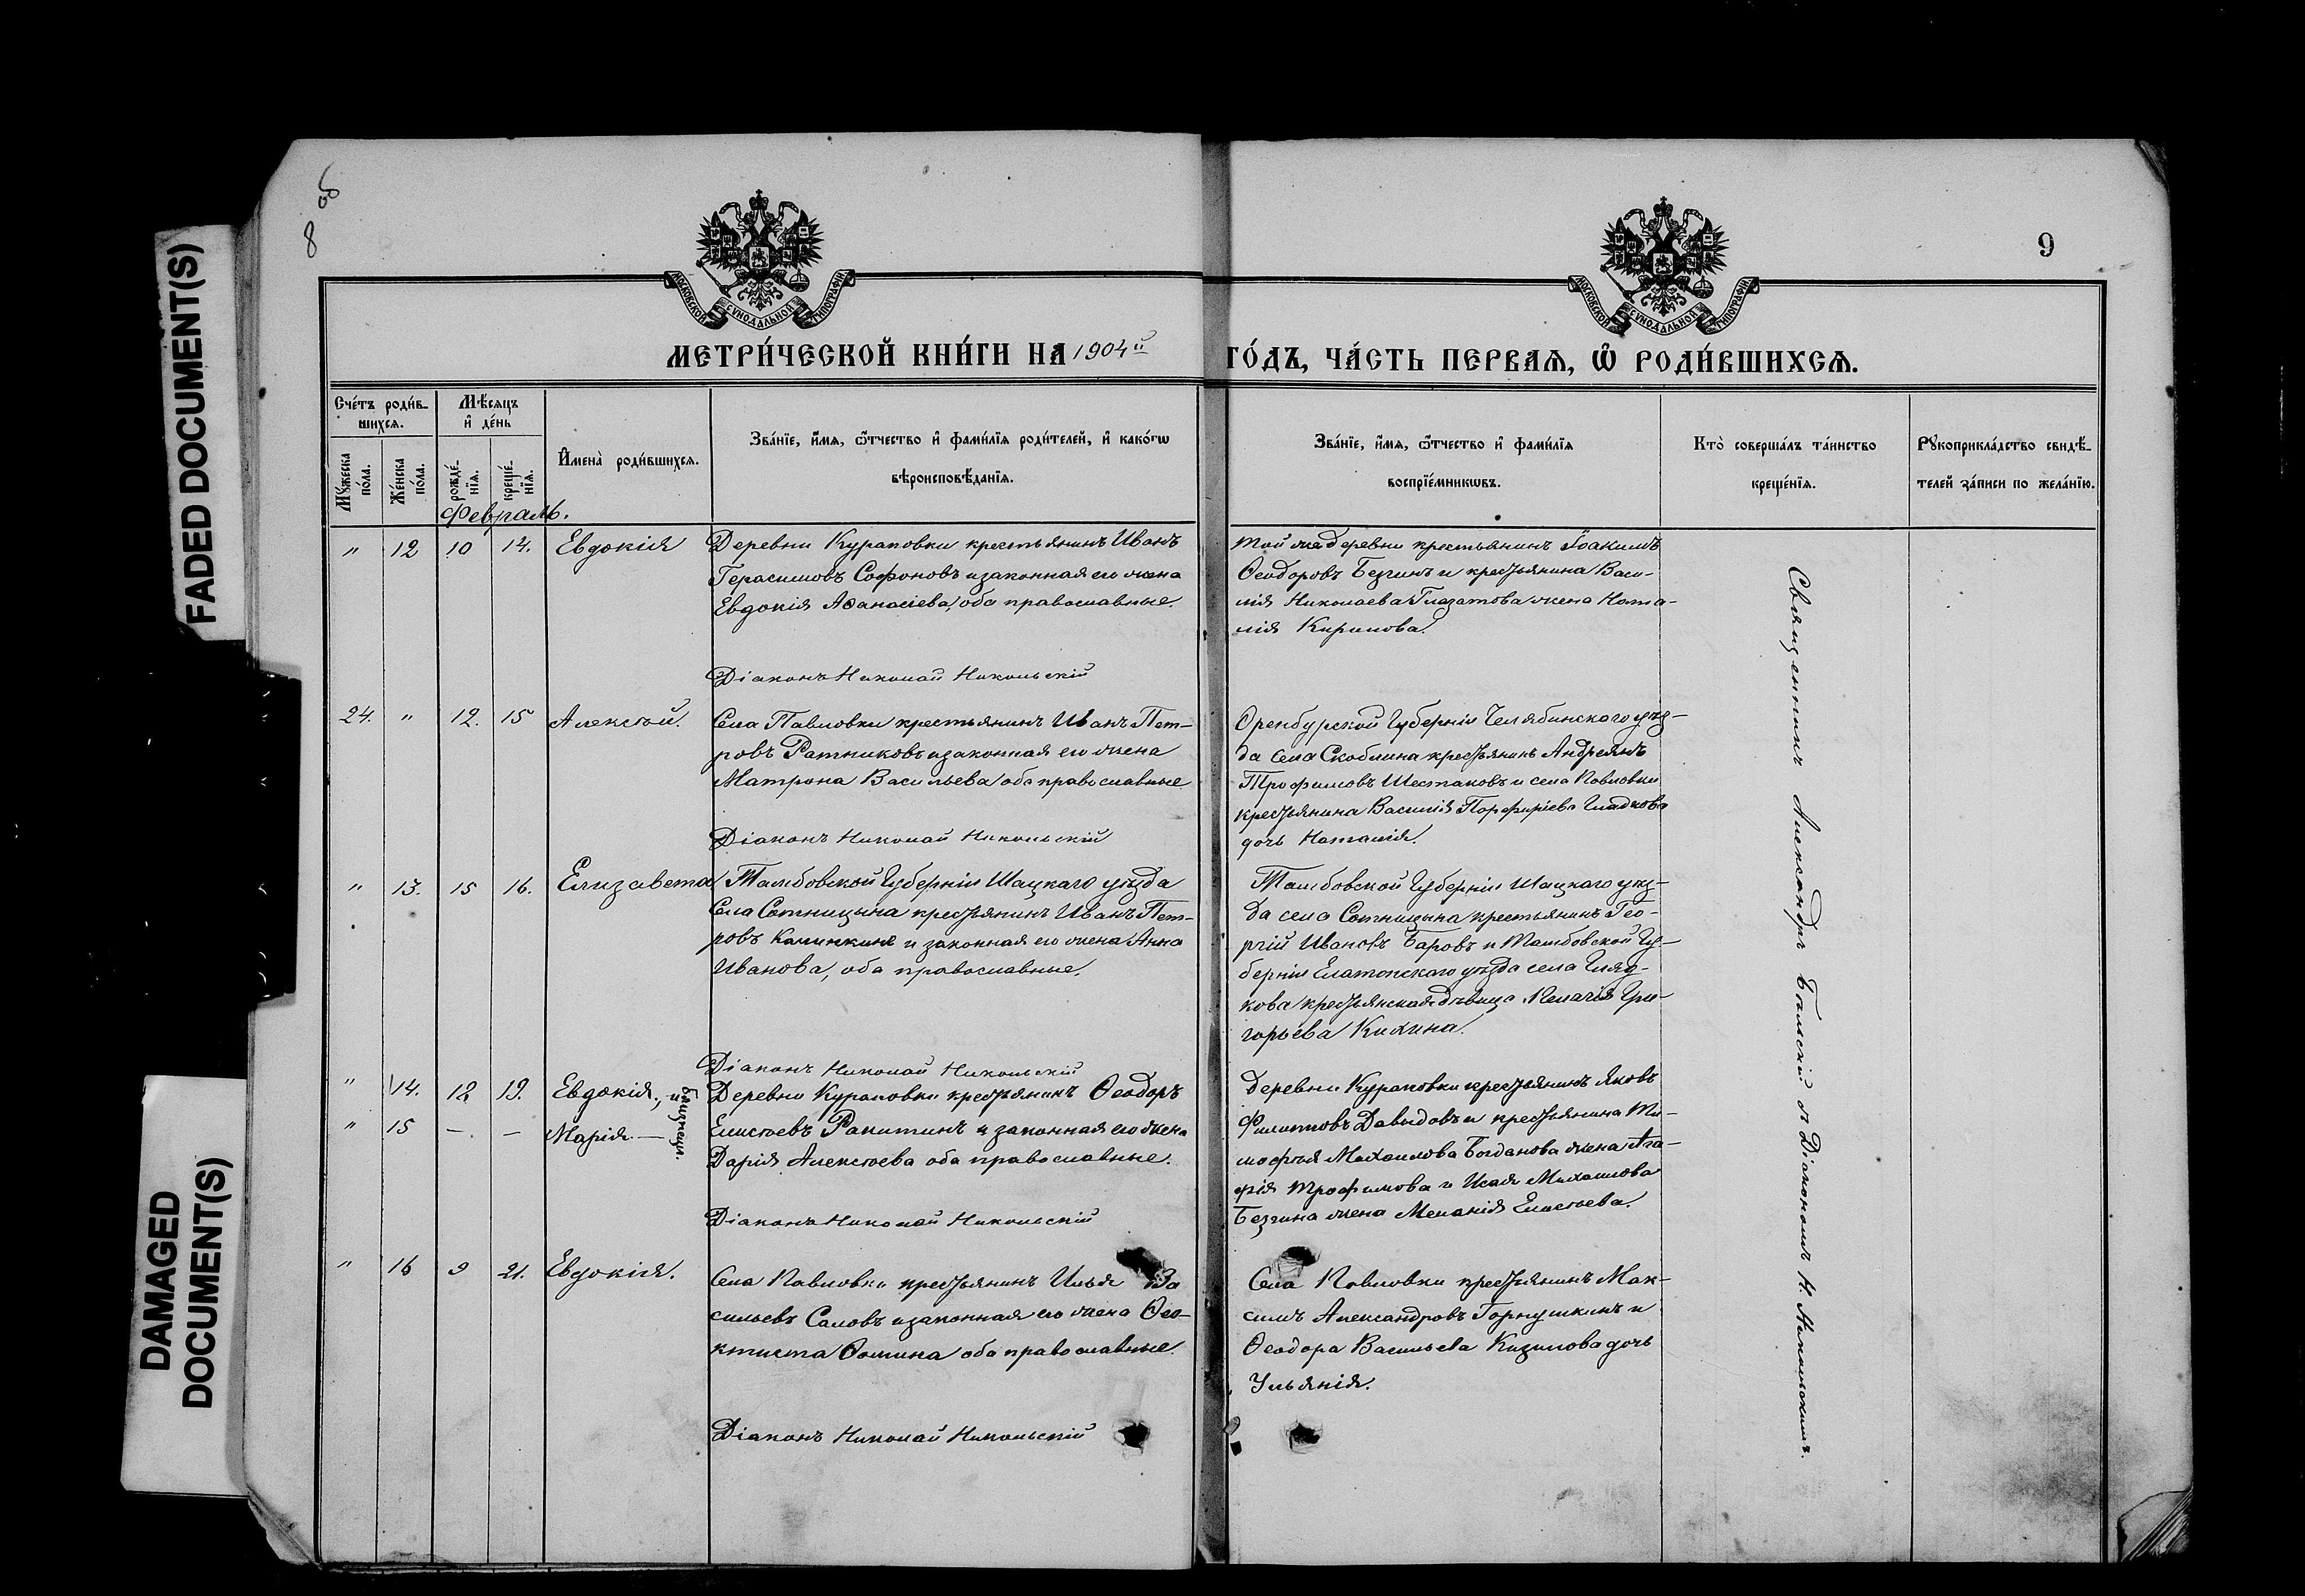 FADED DOCUMENT(S)
DAMAGED
DOCUMENT(S)
8 об
9
МОСКОВСКОЙ СУНОДАЛЬНОЙ ТИПОГРАФІИ
МОСКОВСКОЙ СУНОДАЛЬНОЙ ТИПОГРАФІИ
МЕТРИ́ЧЕСКОЙ КНИ́ГИ НА 1904й ГО́ДЪ, ЧА́СТЬ ПЕРВАѦ, Ѡ РОДИ́ВШИХСѦ.
Сче́тъ роди́в-
шихсѧ.
Мꙋ́жеска
по́ла.
Же́нска
по́ла.
Мѣ́сѧцъ
и де́нь
рожде́-
нїѧ.
креще́-
нїѧ.
Имена̀ роди́вшихсѧ.
Зва́нїе, и́мѧ, ѻ́тчество и фами́лїѧ роди́телей, и како́гѡ
вѣроисповѣ́данїѧ.
Зва́нїе, и́мѧ, ѻ́тчество и фами́лїѧ
воспрїе́мникѡвъ.
Кто̀ соверша́лъ та́инство
креще́нїѧ.
Рꙋкоприкла́дство свидѣ́-
телей за́писи по жела́нїю.
Февраль.
" 12 10 14. Евдокія
Деревни Кураповки крестьянинъ Иванъ
Герасимовъ Софоновъ и законная его жена
Евдокія Аѳанасіева, оба православные.
Діаконъ Николай Никольскій
Той же деревни крестьянинъ Іоакимъ
Ѳеодоровъ Безгинъ и крестьянина Васи-
лія Николаева Глазатова жена Ната-
лія Кирилова.
24. " 12. 15 Алексѣй.
Села Павловки крестьянинъ Иванъ Пет-
ровъ Ратниковъ и законная его жена
Матрона Васильева оба православные
Діаконъ Николай Никольскій
Оренбурской Губерніи Челябинскаго уѣз-
да села Скоблина крестьянинъ Андреянъ
Трофимовъ Шестаковъ и села Павловки
крестьянина Василія Порфиріева Гладкова
дочь Наталія.
" 13. 15 16. Елизавета
Тамбовской Губерніи Шацкаго уѣзда
Села Сотницына крестьянинъ Иванъ Пет-
ровъ Калинкинъ и законная его жена Анна
Иванова, оба православные.
Діаконъ Николай Никольскій
Тамбовской Губерніи Шацкаго уѣз-
да села Сотницына крестьянинъ Гео-
ргій Ивановъ Баровъ и Тамбовской Гу-
берніи Елатомскаго уѣзда села Гляд-
кова крестьянская дѣвица Пелагія Гри-
горьева Кихина.
" 14. 18 19. Евдокія., и
" 15 – – Марія. —
близнецы.
Деревни Кураповки крестьянинъ Ѳеодоръ
Елисѣевъ Ракитинъ и законная его жена
Дарія Алексѣева оба православные.
Діаконъ Николай Никольскій
Деревни Кураповки крестьянинъ Яковъ
Филиповъ Давыдовъ и крестьянина Ти-
мофѣя Михаилова Богданова жена Ага-
фія Трофимова и Исая Михаилова
Безгина жена Меланія Елисѣева.
" 16 9 21. Евдокія.
Села Павловки крестьянинъ Илья Ва
сильевъ Саловъ и законная его жена Ѳео-
ктиста Ѳомина оба православные.
Діаконъ Николай Никольскій
Села Павловки крестьянинъ Мак-
симъ Александровъ Горнушкинъ и
Ѳеодора Васильева Кизилова дочь
Ульянія.
Священникъ Александръ съ Діакономъ Н. Никольскимъ.